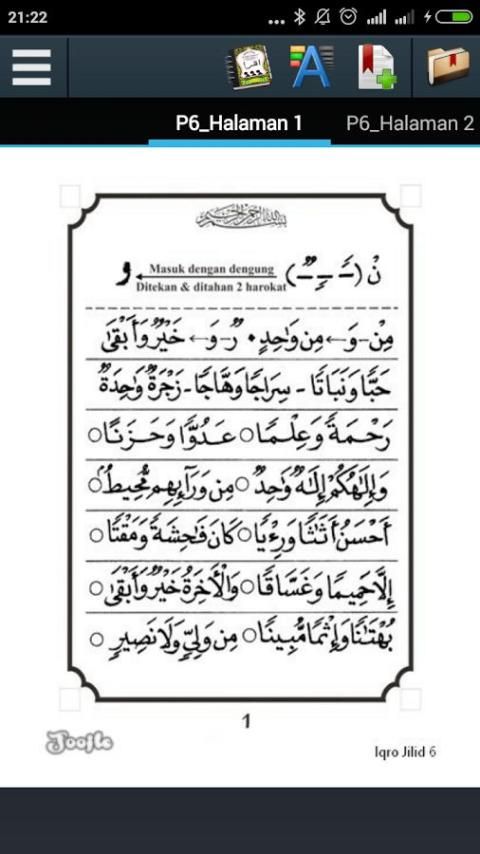 21:22
P6_Halaman 1
P6_Halaman 2
بسم الله الرحمن الرحيم
نْ (ــًـ ــٍـ ــٌـ) Masuk dengan dengung و
Ditekan & ditahan 2 harokat
مِنْ - وَ ← مِن وَاحِدٍ • رٌ - وَ ← خَيْرٌ وَأَبْقَىٰ
حَبًّا وَنَبَاتًا - سِرَاجًا وَهَّاجًا - زَجْرَةٌ وَاحِدَةٌ
رَحْمَةً وَعِلْمًا ○ عَدُوًّا وَحَزَنًا ○
وَإِلَٰهُكُمْ إِلَٰهٌ وَاحِدٌ ○ مِن وَرَآئِهِم مُّحِيطٌ ○
أَحْسَنُ أَثَٰثًا وَرِءْيًا ○ كَانَ فَٰحِشَةً وَمَقْتًا ○
إِلَّا حَمِيمًا وَغَسَّاقًا ○ وَالْأٓخِرَةُ خَيْرٌ وَأَبْقَىٰ ○
بُهْتَٰنًا وَإِثْمًا مُّبِينًا ○ مِن وَلِيٍّ وَلَا نَصِيرٍ ○
1
Joojle
Iqro Jilid 6